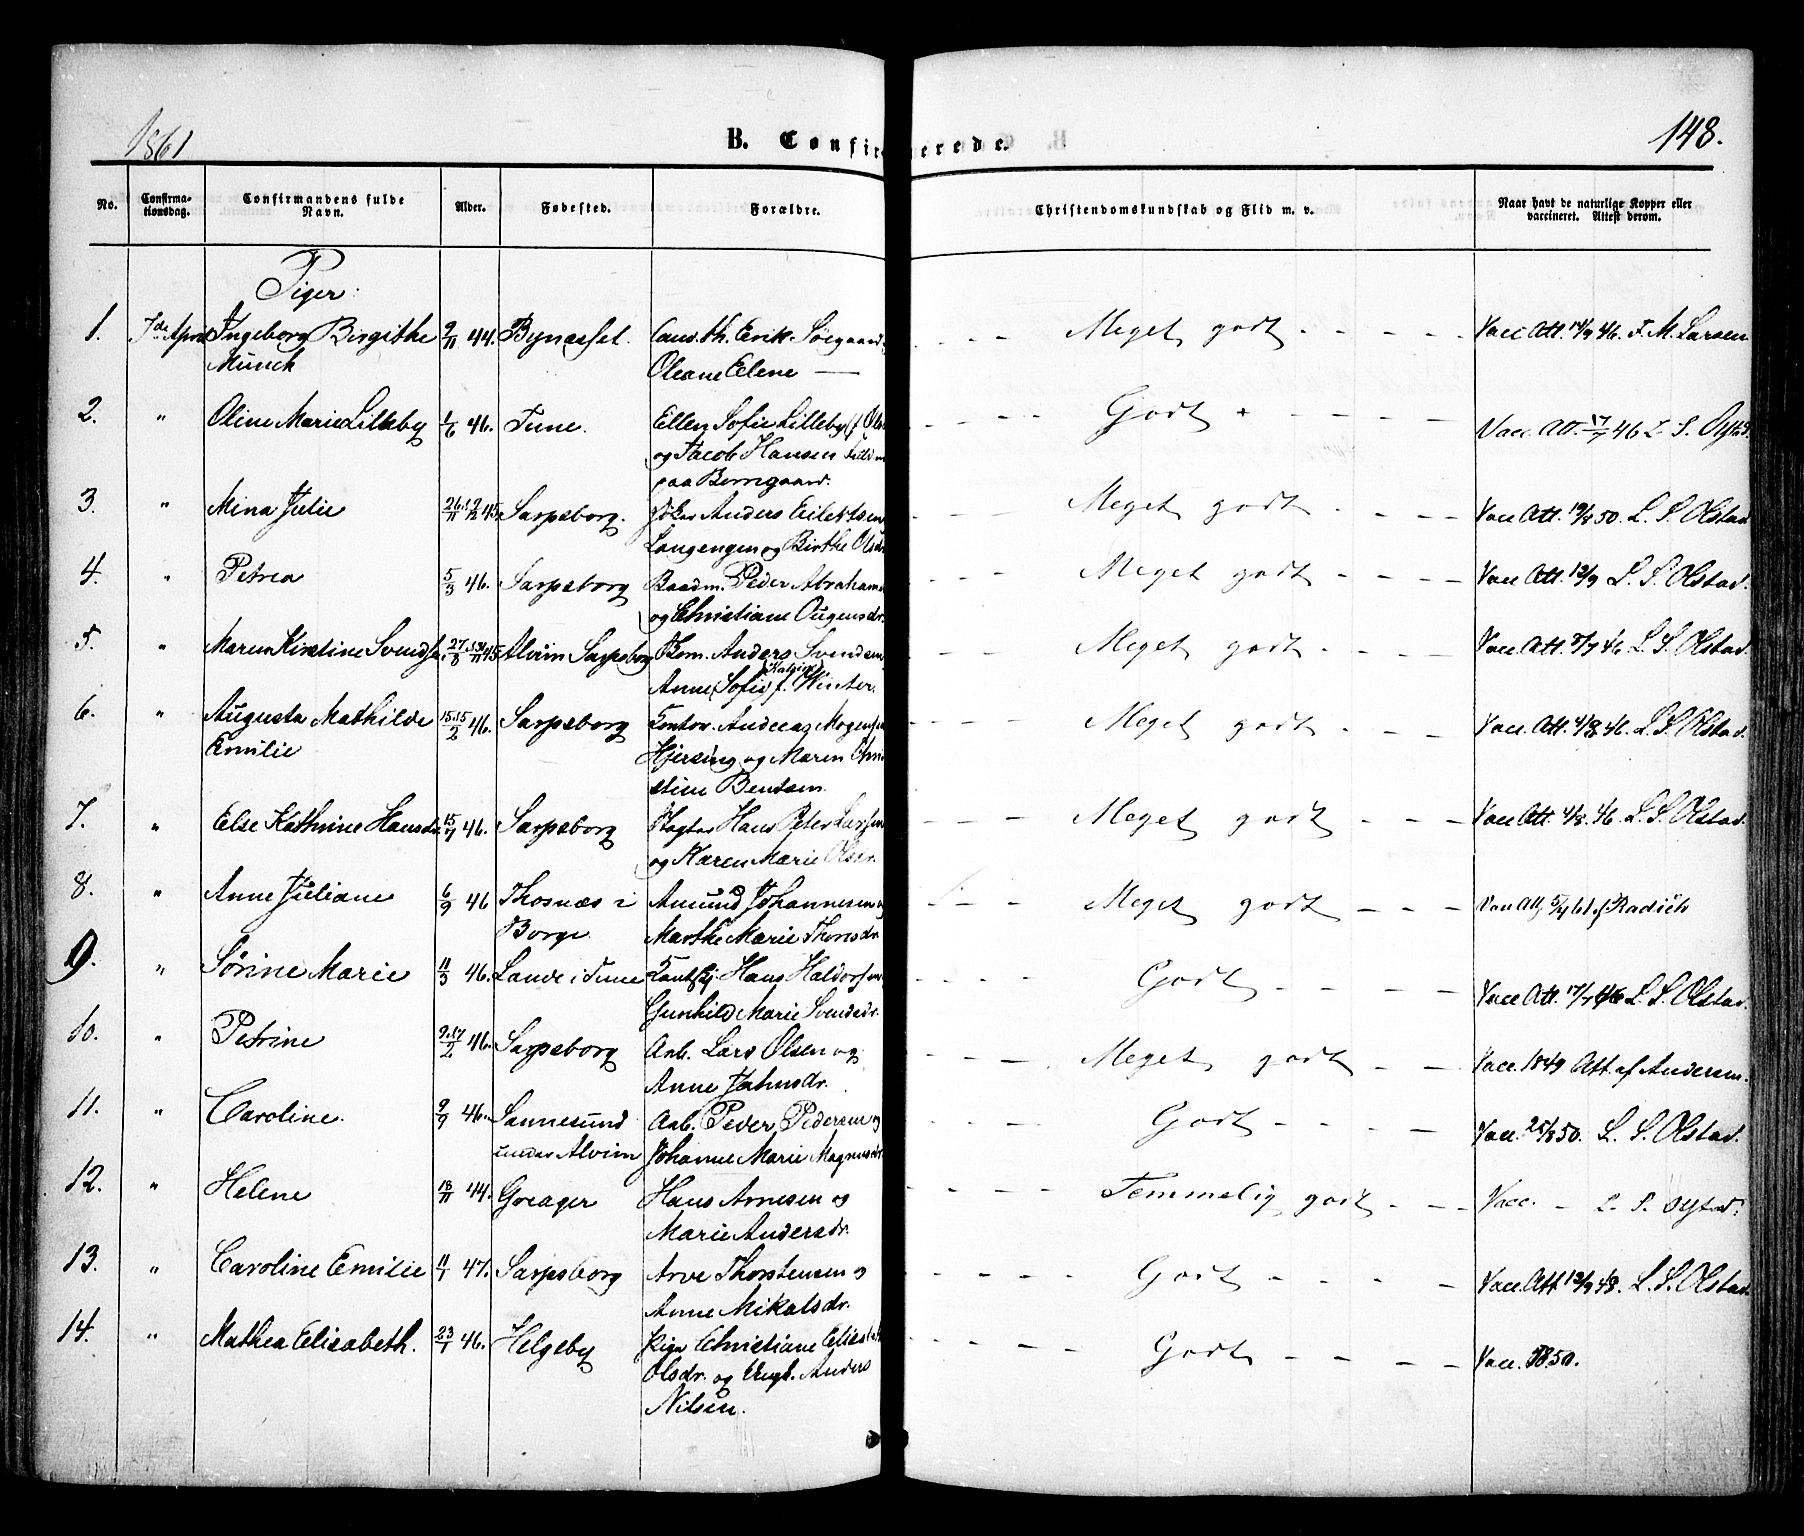 1861
B. Confirmerede.
148.
No.
Confirma-
tionsdag.
Confirmandens fulde
Navn.
Alder.
Fødested.
Forældre.
Christendomskundskab og Flid m. v.
Naar havt de naturlige Kopper eller
vaccineret. Attest derom.
Piger:
1. 7de April Ingeborg Birgithe 9/11 44. Bynæsset. Erik Søegaard Meget godt Vacc. Att. 14/9 46. F. M. Larsen
Munch Oleane Elene —
2. " Oline Marie Lilleby 1/6 46. Tune. Ellen Sofie Lilleby Godt + Vacc. Att. 17/7 46 L. S.
og Jacob Hansen
paa Borregaard.
3. " Mina Julie 26/11 45. Sarpsborg. Anders Eilertsen Meget godt Vacc Att. 19/8 50. L. S. Olstad
Langengen og Birthe Olsdr
4. " Petrea 5/3 46. Sarpsborg Baadm. Peder Abrahams Meget godt Vacc Att. 12/9 L. S. Olstad.
og Christiane Ougensdr.
5. " Maren Kirstine Svends 27/8 45 Alvim Sarpsborg Anders Svendsen Meget godt Vacc. Att. 3/7 46 L. S. Olstad.
Anne (Sofie) f. Winter.
6. " Augusta Mathilde 15/2 46. Sarpsborg Kontor. Andreas Mogens Meget godt Vacc. Att. 4/8 46. L. S. Olstad.
Emilie Hjersing og Maren Chri
stine Bentsen.
7. " Else Kathrine Hansdr. 15/7 46. Sarpsborg Hans Peter Larsen Meget godt Vacc Att. 4/8 46 L. S. Olstad.
og Karen Marie Olsdr.
8. " Anne Juliane 6/9 46 Thosnæs i Amund Johannesen og Meget godt Vacc Att 5/4 61 af Radich
Borge Marthe Marie Thorsdr
9. " Sørine Marie 11/3 46. Lande i Tune Hans Haldorsen Godt Vacc Att. 17/7 46 L. S. Olstad.
Gunhild Marie Svendsdr.
10. " Petrine 9/2 46. Sarpsborg Arb. Lars Olsen og Meget godt Vacc. 1849 Att. af Andersen.
Anne Johnsdr.
11. " Caroline. 9/9 46. Sannesund Arb. Peder Pedersen og Godt Vacc. 25/8 50. L. S. Olstad.
under Alvim Johanne Marie Magnusdr
12. " Helene 18/11 44. Greager Hans Arnesen og Temmelig godt Vacc. L. S.
Marie Andersdr.
13. " Caroline Emilie 11/1 47. Sarpsborg Arve Thorstensen og Godt Vacc Att 12/9 48. L. S. Olstad.
Anne Mikalsdr.
14. " Mathea Elisabeth. 23/1 46. Helgeby Pige Christiane Elisabeth Godt Vacc. 1850.
Olsdr. og Ungk. Anders
Nilsen.